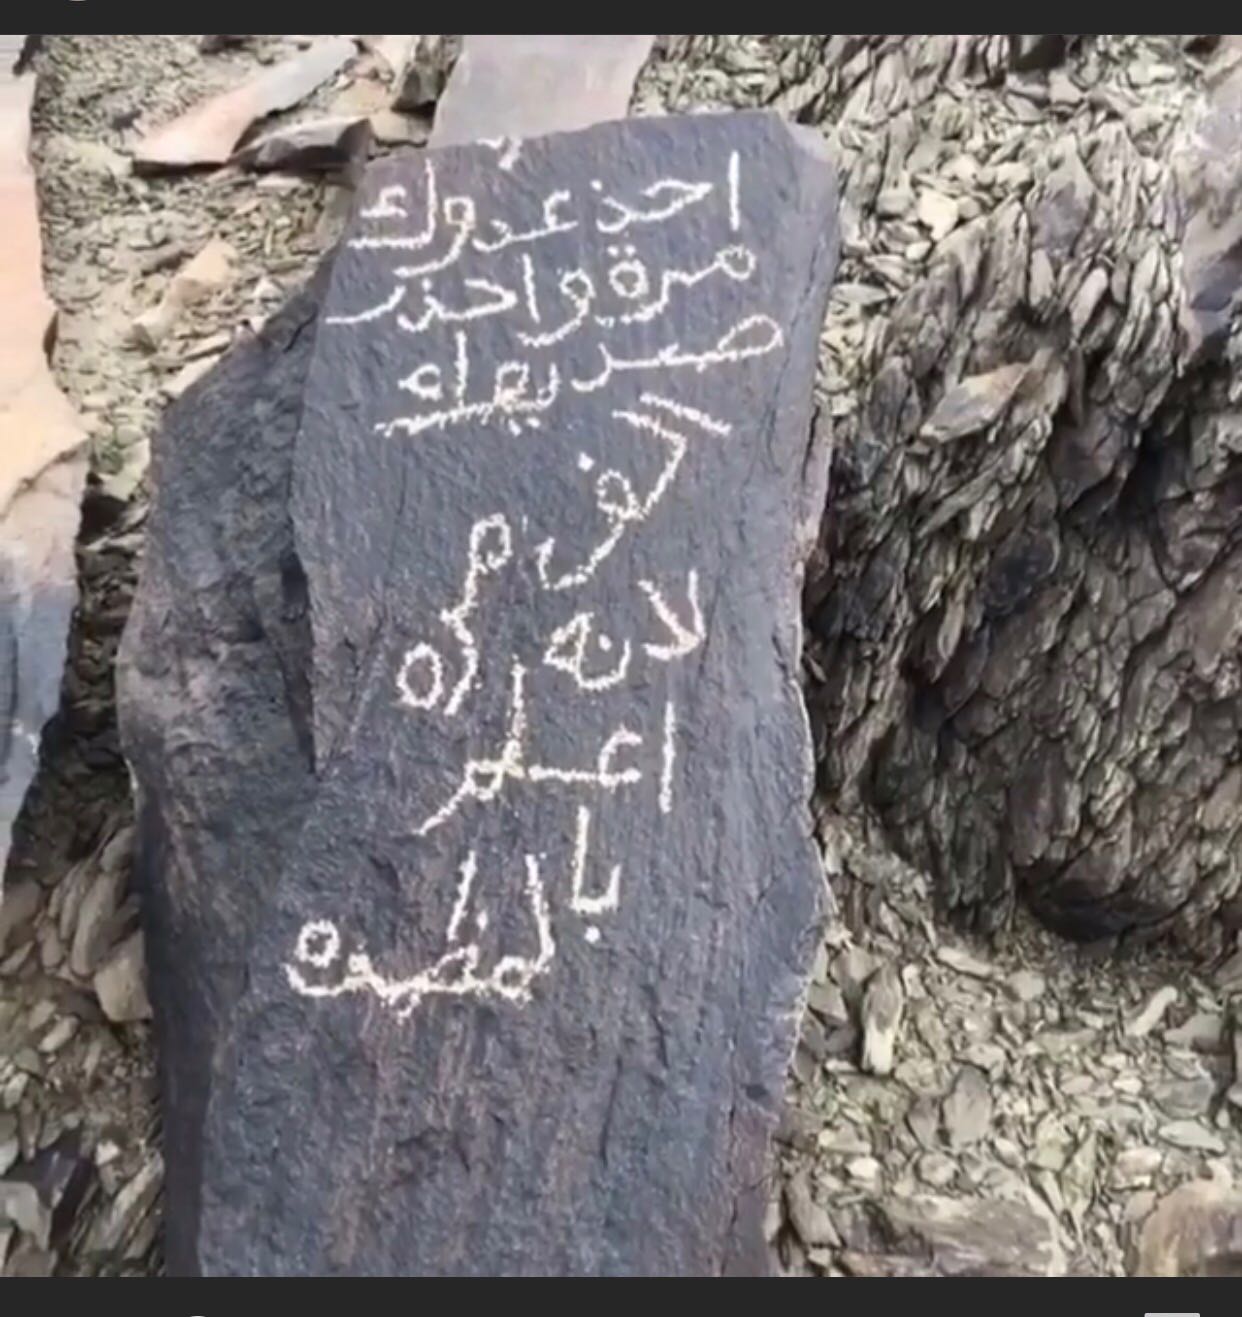 احذ عدوك
مرة واحذر
صديقك
الف مرة
لانه
اعلم
با
لمضرة